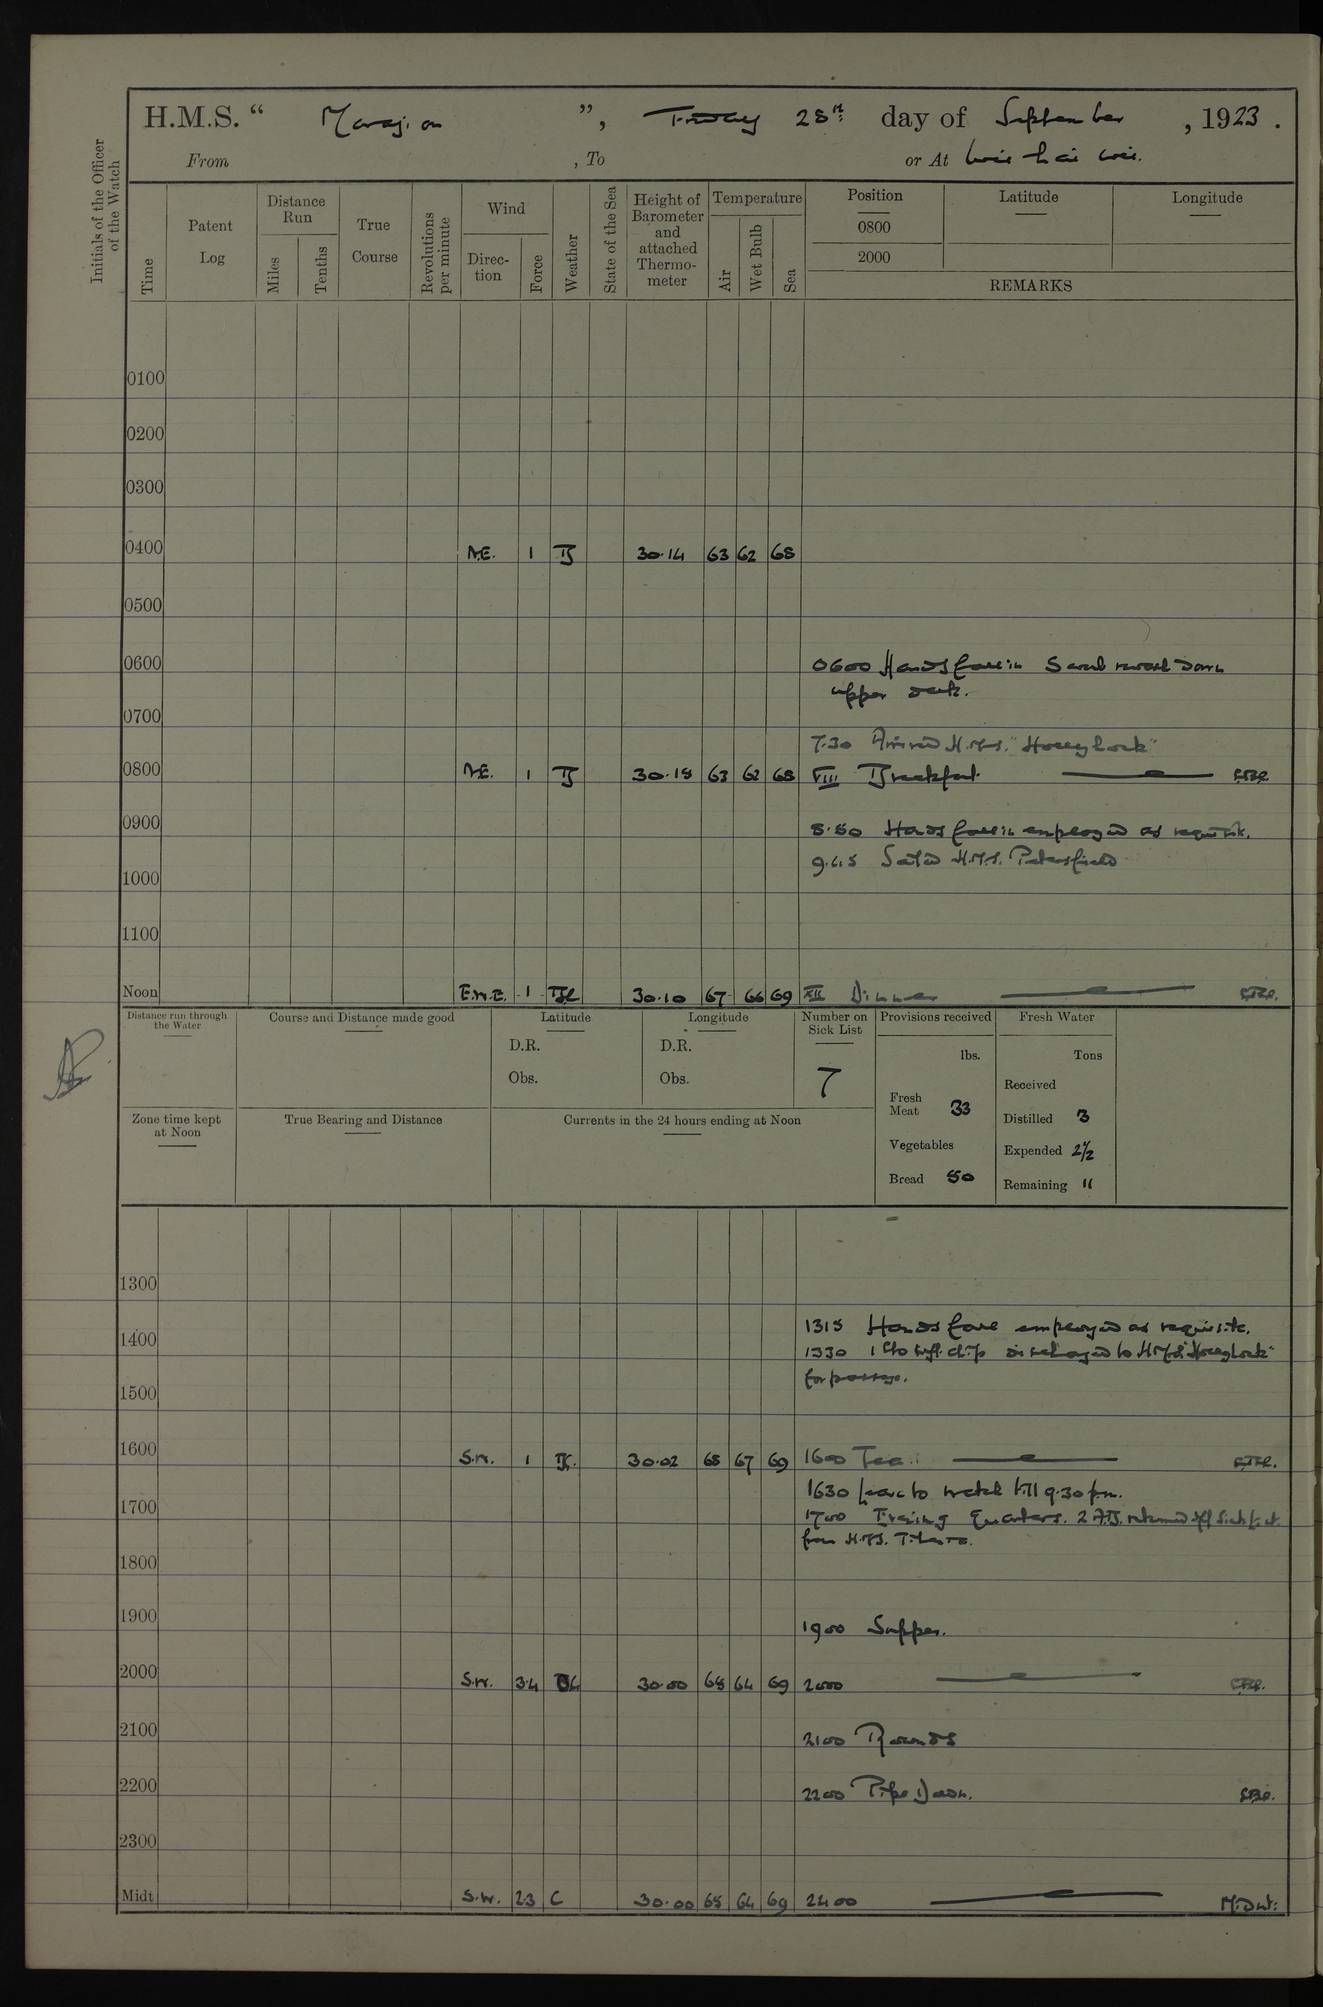 H.M.S. “ Marazion ”, Friday 28th day of September, 1923.
From , To or At Wei hai wei.
Initials of the Officer of the Watch
Time
Patent Log
Distance Run
Miles
Tenths
True Course
Revolutions per minute
Wind
Direction
Force
Weather
State of the Sea
Height of Barometer and attached Thermometer
Temperature
Air
Wet Bulb
Sea
Position
0800
2000
Latitude
Longitude
REMARKS
0100
0200
0300
0400 N.E. 1 B 30.14 63 62 68
0500
0600 0600 Hands fall in Scrub wash down
upper deck.
0700
7.30 Arrived H.M.S. "Hollyhock"
0800 N.E. 1 B 30.18 63 62 68 VIII Breakfast.
0900 8.50 Hands fall in employed as requisite.
9.45 Sailed H.M.S. Petersfield
1000
1100
Noon E.N.E. 1 30.10 67 66 69 XII Dinner
Distance run through the Water
Course and Distance made good
Latitude
D.R.
Obs.
Longitude
D.R.
Obs.
Number on Sick List
7
Provisions received
lbs.
Fresh Meat 33
Vegetables
Bread 50
Fresh Water
Tons
Received
Distilled 3
Expended 2½
Remaining 11
Zone time kept at Noon
True Bearing and Distance
Currents in the 24 hours ending at Noon
1300
1315 Hands fall employed as requisite.
1400
1330 1 discharged to H.M.S "Hollyhock"
for passage.
1500
1600 S.W. 1 30.02 68 67 69 1600 Tea.
1630 Leave to watch till 9.30 p.m.
1700 1700 Evening Quarters. 2 A.B. returned off Sick List
from H.M.S. Titania.
1800
1900 1900 Supper.
2000 S.W. 3.4 30.00 65 64 69 2000
2100 2100 Rounds
2200 2200 Pipe Down.
2300
Midt S.W. 2.3 C 30.00 65 64 69 2400